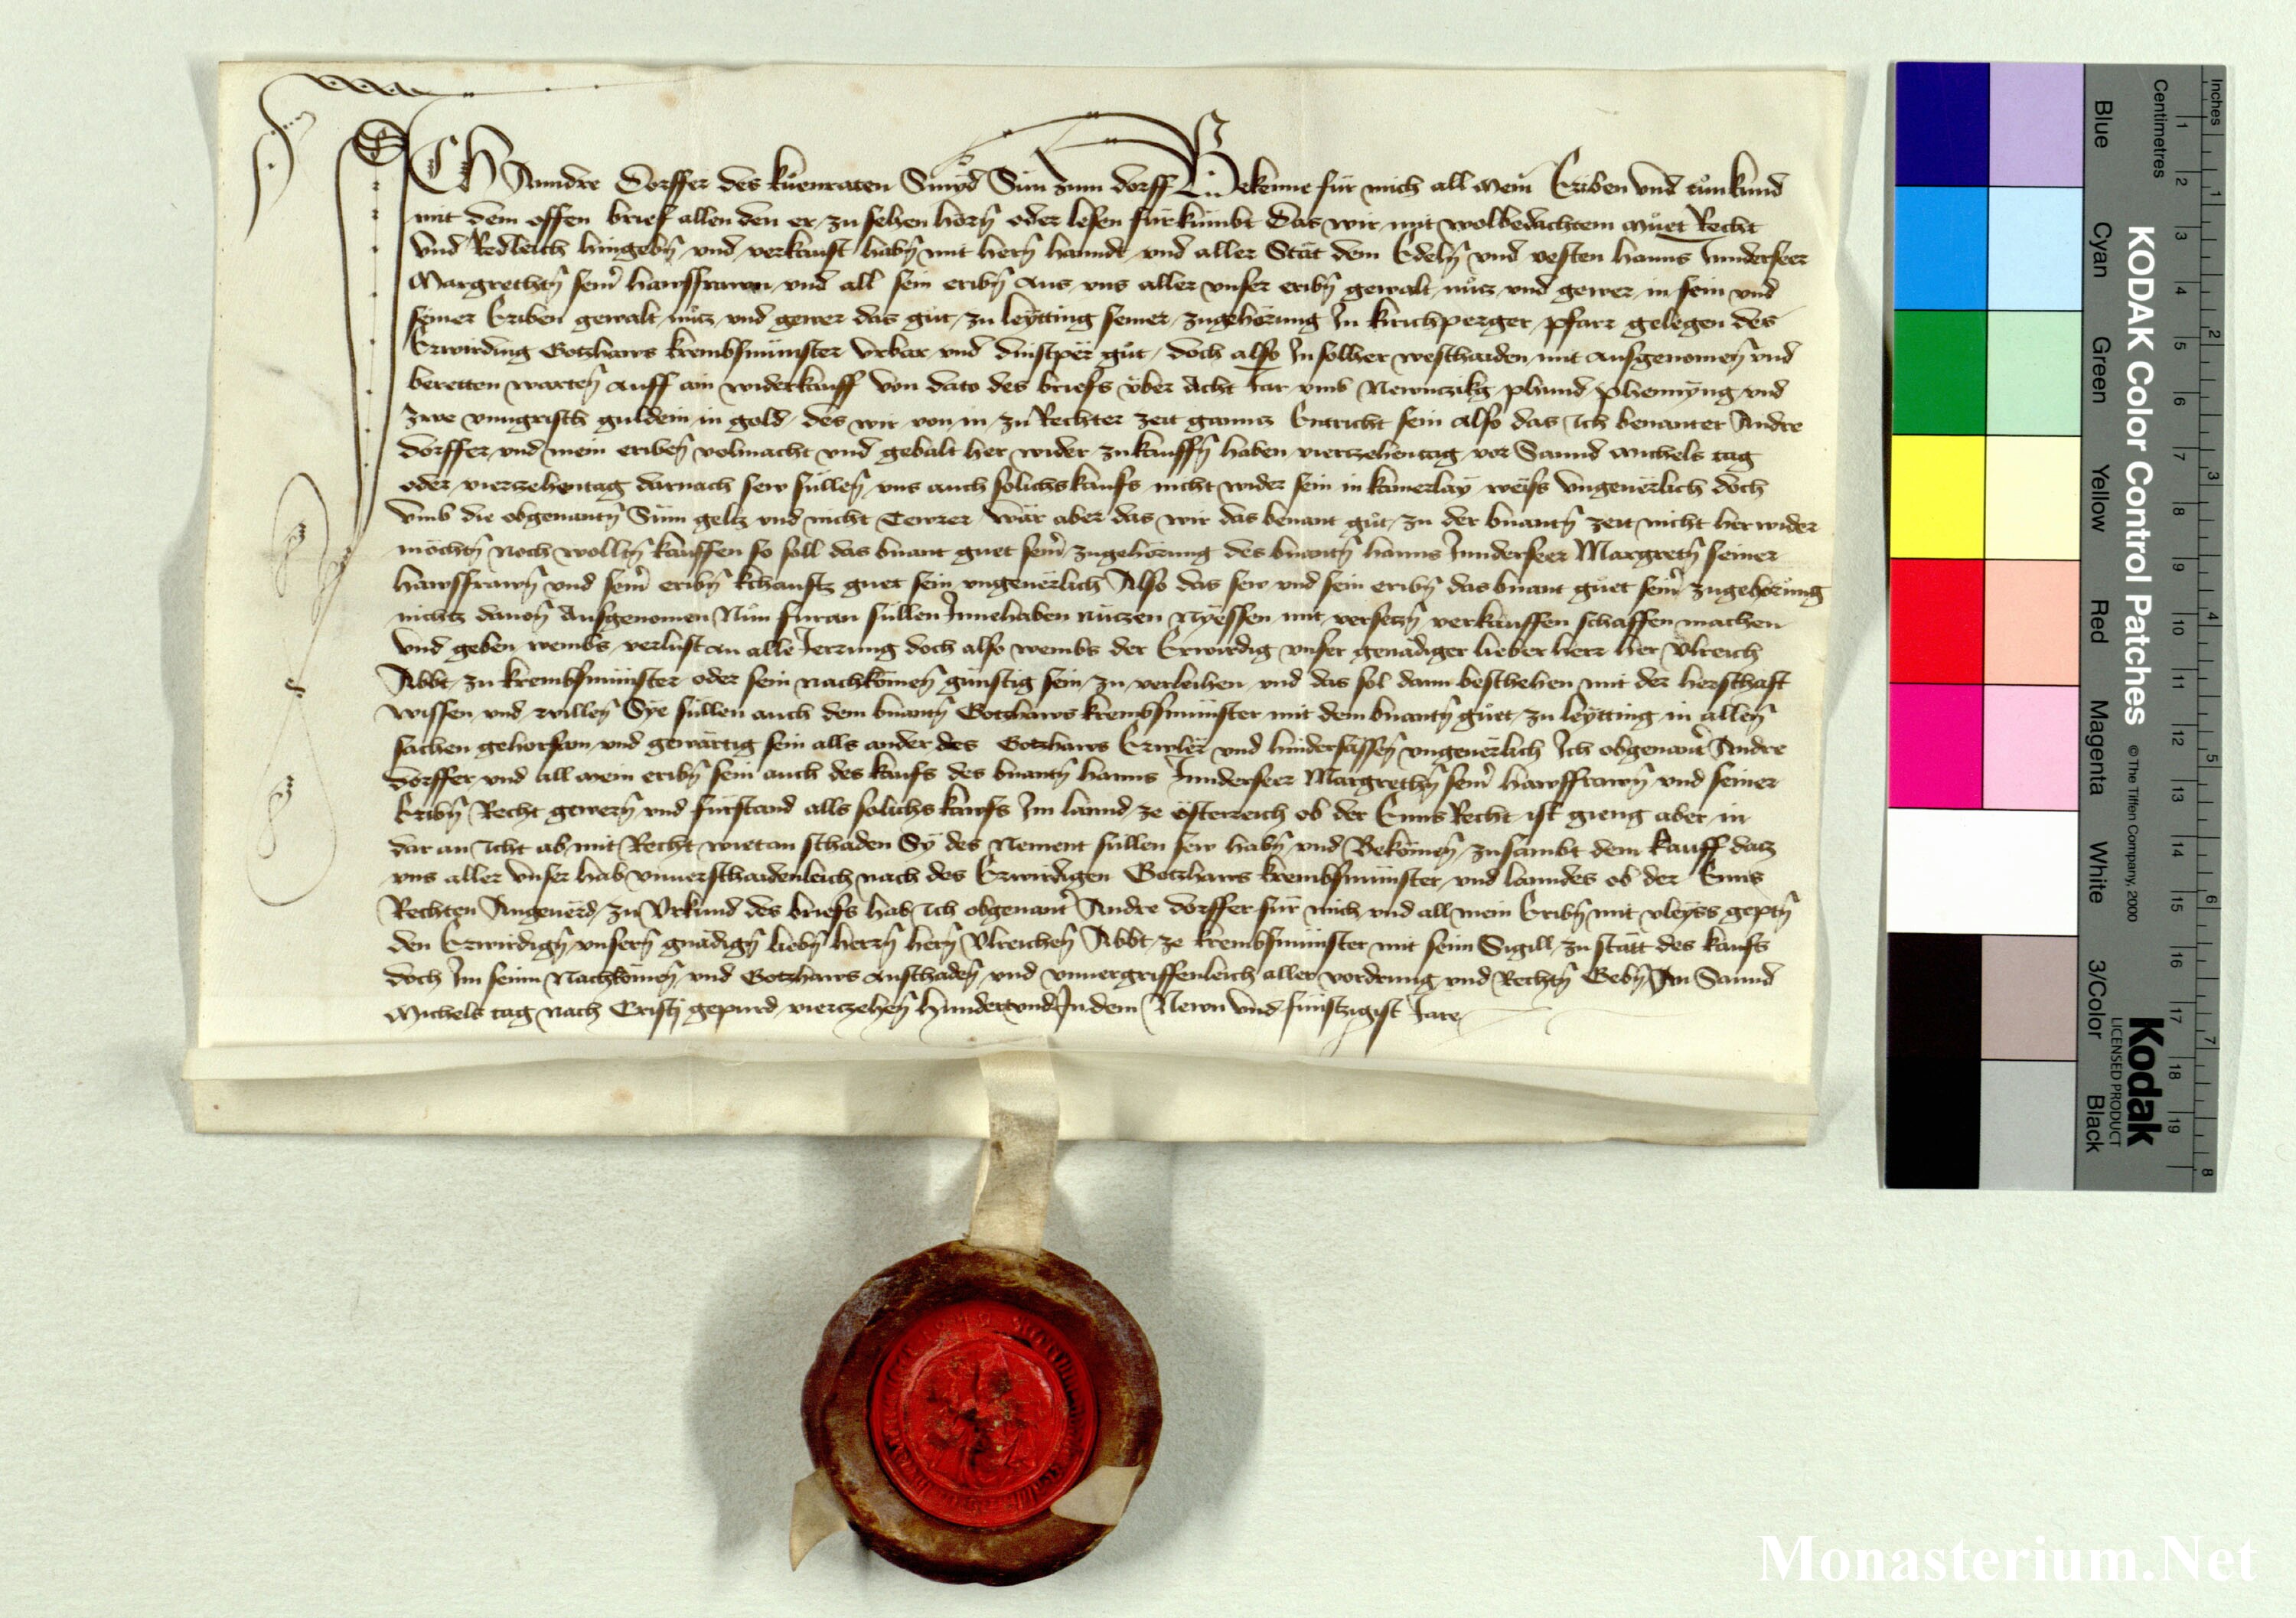 ICH Anndre Dorffer des kůenraten Smÿd Sün zum dorff Bekenne für mich all mein Eriben vnd tůn kund
mit dem offen brief allen den er zu sehen hörn̄ oder lesen fürkümbt Das wir mit wolbedachtem můet Recht
vnd Redleich hingebn̄ vnd verkauft habn̄ mit hern̄ hannde vnd aller Stät dem Edeln̄ vnd vesten hanns Innderseer
Margrethn̄ sein̄ hawssfrawn vnd all sein eribn̄ aus vns aller vnser eribn̄ gewalt nůtz vnd gewer in sein vnd
seiner Eriben gewalt nůtz vnd gewer das gůt zu leÿtting seiner zugehörung In kirichperger pfarr gelegen des
Erwirding Gotzhaws krembsmünster vrbar vnd dinstper gůt doch also In solher beschaiden mit ausgenomen̄ vnd
beretten warten̄ auff ain widerkauff von dato des briefs über Acht Iar vmb Newnczikg phund phennÿng vnd
zwe vnngrisch guldein in gold des wir von in zu Rechter zeit gannz Entricht sein also das Ich benanter Andre
dorffer vnd mein eriben̄ volmacht vnd gebalt her wider zukauffn̄ haben viertzehentag vor Sannd michels tag
oder viertzehentag darnach sew süllen̄ vns auch solichs kaufs nicht wider sein in kainerlaÿ weis vngeuërlich doch
vmb die obgenantn̄ Süm geltz vnd nicht Tewrer wär aber das wir das benant gůt zu der bnantn̄ zeit nicht her wider
möchtn̄ noch wolltn̄ kauffen so soll das bnant guet sein̄ zugehörung des bnantn̄ hanns Innderseer Margretn̄ seiner
hawssfrawn̄ vnd sein̄ eribn̄ kchauftz guet sein vngeuërlich Also das sew vnd sein eribn̄ das bnant gůet sein̄ zugehörung
nichtz dauon̄ Ausgenomen Nůn füran süllen Innehaben nützen nÿessen mit versetzn̄ verkauffen schaffen machen
vnd geben wembs verlust an alle Ierrung doch also wembs der Erwirdig vnser genädiger lieber herr her Vlreich
Abbt zu krembsmünster oder sein nachkömen̄ günstig sein zu verleihen vnd das sol dann beschehen mit der herschaft
wissen vnd willen̄ Sÿe süllen auch dem bnantn̄ Gotzhaws krembsmünster mit dem bnantn̄ gůet zu leÿtting in allen̄
sachen gehorsam vnd gewärtig sein alls ander des Gotzhaws Erwler vnd hindersässen̄ vngeuërlich Ich obgenant̄ Andre
dorffer vnd all mein eribn̄ sein auch des kaufs des bnantn̄ hanns Innderseer Margrethn̄ sein̄ hawssfrawn̄ vnd seiner
Eribn̄ Recht gewern̄ vnd fürstand alls solichs kawfs Im lannd ze österreich ob der Enns Recht ist gieng aber in
dar an Icht ab mit Recht wietan schaden Sÿ des nement süllen sew habn̄ vnd Bekömen̄ zusambt dem kauff datz
vns aller vnser hab vnuerschaidenleich nach des Erwirdigen Gotzhaws krembsmünster vnd lanndes ob der Enns
Rechten Angeuërd zu Vrkund des briefs hab Ich obgenant̄ Andre dorffer für mich vnd all mein Eribn̄ mit vleÿss geptn̄
den Erwirdign̄ vnsern̄ gnädign̄ liebn̄ herrn̄ hern̄ Vlreichen̄ Abbt ze krembsmünster mit seim Sigill zu stätt des kaufs
doch Im seinn Nachkömen̄ vnd Gotzhaws anschaden̄ vnd vnuergriffenleich aller vordrung vnd Rechtn̄ Gebn̄ An Sannd
Michels tag nach Cristj gepurd viertzehen̄ hundert vnd In dem Newn vnd fünftzigist Iare
KODAK Color Control Patches
© The Tiffen Company, 2000
Kodak
LICENSED PRODUCT
Blue Cyan Green Yellow Red Magenta White 3/Color Black
Centimetres 1 2 3 4 5 6 7 8 9 10 11 12 13 14 15 16 17 18 19
Inches 1 2 3 4 5 6 7 8
Monasterium.Net